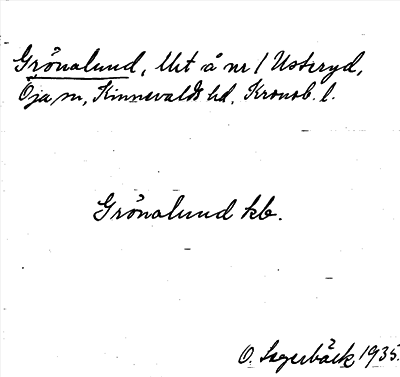 Grönalund, lht å nr 1 Usteryd,
Öja sn, Kinnevalds hd, Kronob. l.
Grönalund kb.
O. Sagerbäck 1935.